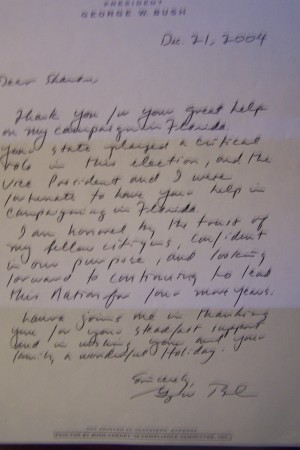 PRESIDENT
GEORGE W. BUSH
Dec. 21, 2004
Dear
Thank you for your great help
on my campaign in Florida.
Your state played a critical
role in this election, and the
Vice President and I were
fortunate to have your help in
campaigning in Florida.
I am honored by the trust of
my fellow citizens, confident
in our purpose, and looking
forward to continuing to lead
this Nation for four more years.
Laura joins me in thanking
you for your steadfast support
and in wishing you and your
family a wonderful Holiday.
Sincerely,
NOT PRINTED AT TAXPAYERS' EXPENSE
PAID FOR BY BUSH-CHENEY '04 COMPLIANCE COMMITTEE, INC.